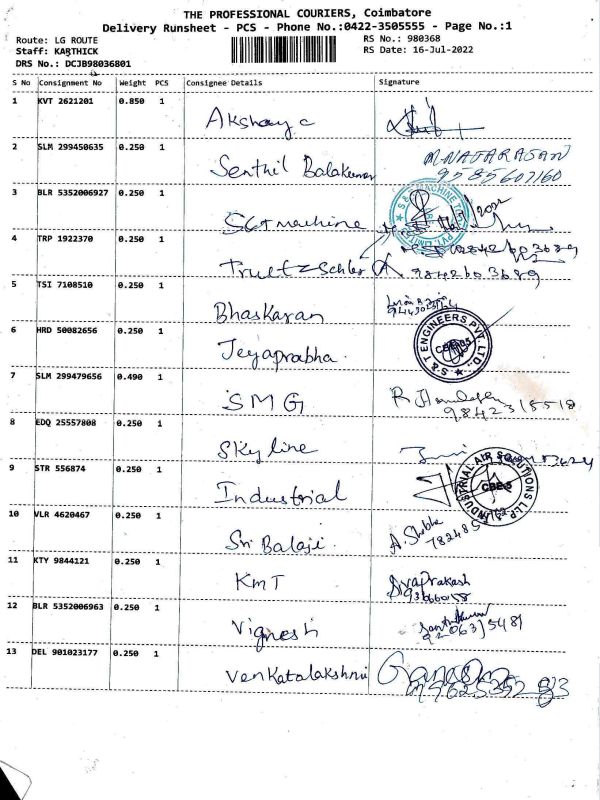 THE PROFESSIONAL COURIERS, Coimbatore
Delivery Runsheet - PCS - Phone No.:0422-3505555 - Page No.:1
Route: LG ROUTE
RS No.: 980368
Staff: KARTHICK
RS Date: 16-Jul-2022
DRS No.: DCJB98036801
S No Consignment No Weight PCS Consignee Details Signature
1 KVT 2621201 0.850 1 Akshaya
2 SLM 299450635 0.250 1 Senthil Balakumar M.NATARAJAN
9585607160
3 BLR 5352006927 0.250 1 S&T machine
4 TRP 1922370 0.250 1 9842603689
5 TSI 7108510 0.250 1 Bhaskaran
6 HRD 50082656 0.250 1 Jeyaprabha. S & T ENGINEERS PVT. LTD.
7 SLM 299479656 0.490 1 SMG
9842315518
8 EDQ 25557808 0.250 1 Skyline
9 STR 556874 0.250 1 Industrial INDUSTRIAL AIR SOLUTIONS LLP CBE-5
10 VLR 4620467 0.250 1 Sri Balaji. A. Shobha
11 KTY 9844121 0.250 1 KMT Sivaprakash
12 BLR 5352006963 0.250 1 Vignesh
13 DEL 901023177 0.250 1 Venkatalakshmi